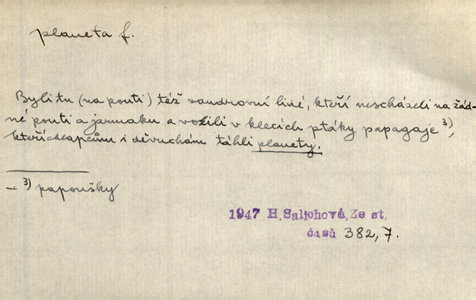 planeta f.
Byli tu (na pouti) též vandrovní lidé, kteří nescházeli na žád-
né pouti a jarmaku a vozili v klecích ptáky papagaje ³),
kteří chlapcům i děvuchám táhli planety.
– ³) papoušky
1947 H. Salichová, Ze st.
časů 382, 7.